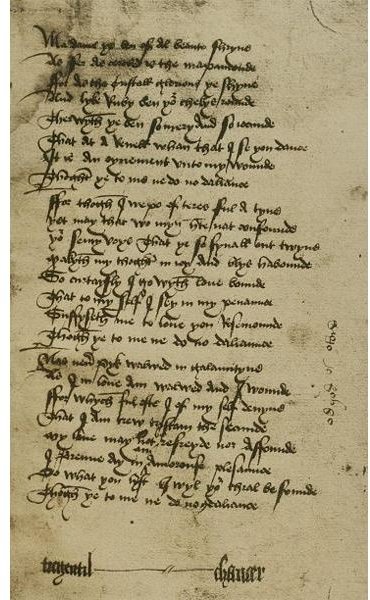 Madame ye ben of al beaute shryne
As fer as cercled is the mapamounde
ffor as the cristall glorious ye shyne
And lyke Ruby ben yor chekys rounde
Therwyth ye ben so mery and so iocunde
That at a Reuell whan that I se you dance
It is an oynement vnto my wounde
Thoght ye to me ne do no daliance
ffor thogh I wepe of teres ful a tyne
yet may that wo myn herte nat confounde
yor semy voys that ye so small out twyne
Makyth my thoght in ioy and blys habounde
So curtaysly I go wyth loue bounde
That to my self I sey in my penaunce
Suffyseth me to loue you Rosemounde
Thogh ye to me ne do no daliaunce
Nas neuer Pyk walwed in galauntyne
As I in loue am walwed and I wounde
ffor whych ful ofte I of my self deuyne
That I am trew tristam the secunde
My loue may not refreyde nor affounde
I brenne ay in an amorouse plesaunce
Do what you lyst I wyl yor thral be founde
Thogh ye to me ne do no daliance
tregentil chaucer